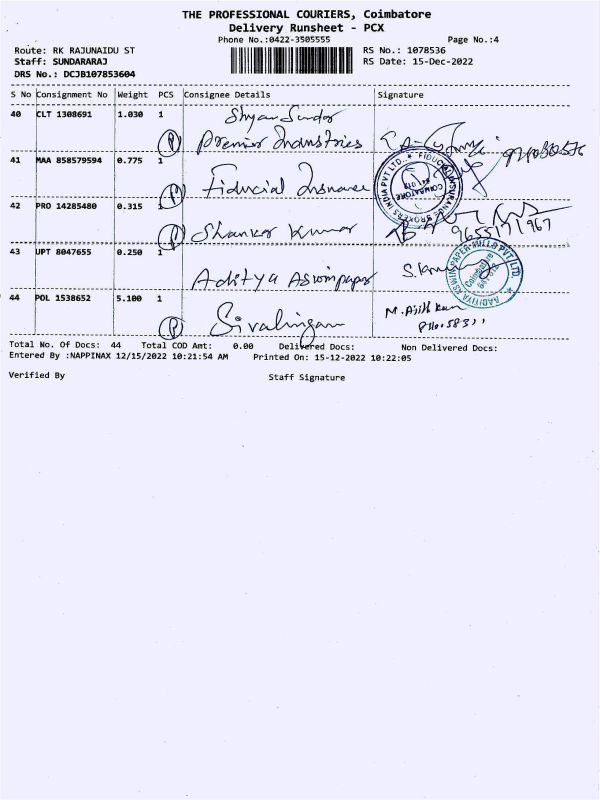 THE PROFESSIONAL COURIERS, Coimbatore
Delivery Runsheet - PCX
Phone No.:0422-3505555 Page No.:4
Route: RK RAJUNAIDU ST RS No.: 1078536
Staff: SUNDARARAJ RS Date: 15-Dec-2022
DRS No.: DCJB107853604
S No Consignment No Weight PCS Consignee Details Signature
40 CLT 1308691 1.030 1 Shyam Sundar
(P) Premier Industries
41 MAA 858579594 0.775 1
(P) Fiducial Insurance
FIDUCIAL INSURANCE BROKERS INDIA PVT LTD. COIMBATORE
42 PRO 14285480 0.315 1
(P) Shankar Kumar 9655171967
43 UPT 8047655 0.250 1
Aditya Aswinpaper
AADITIYA ASWIN PAPER MILLS PVT LTD. Coimbatore
44 POL 1538652 5.100 1
(P) Sivalingam M. Ajith
Total No. Of Docs: 44 Total COD Amt: 0.00 Delivered Docs: Non Delivered Docs:
Entered By :NAPPINAX 12/15/2022 10:21:54 AM Printed On: 15-12-2022 10:22:05
Verified By Staff Signature